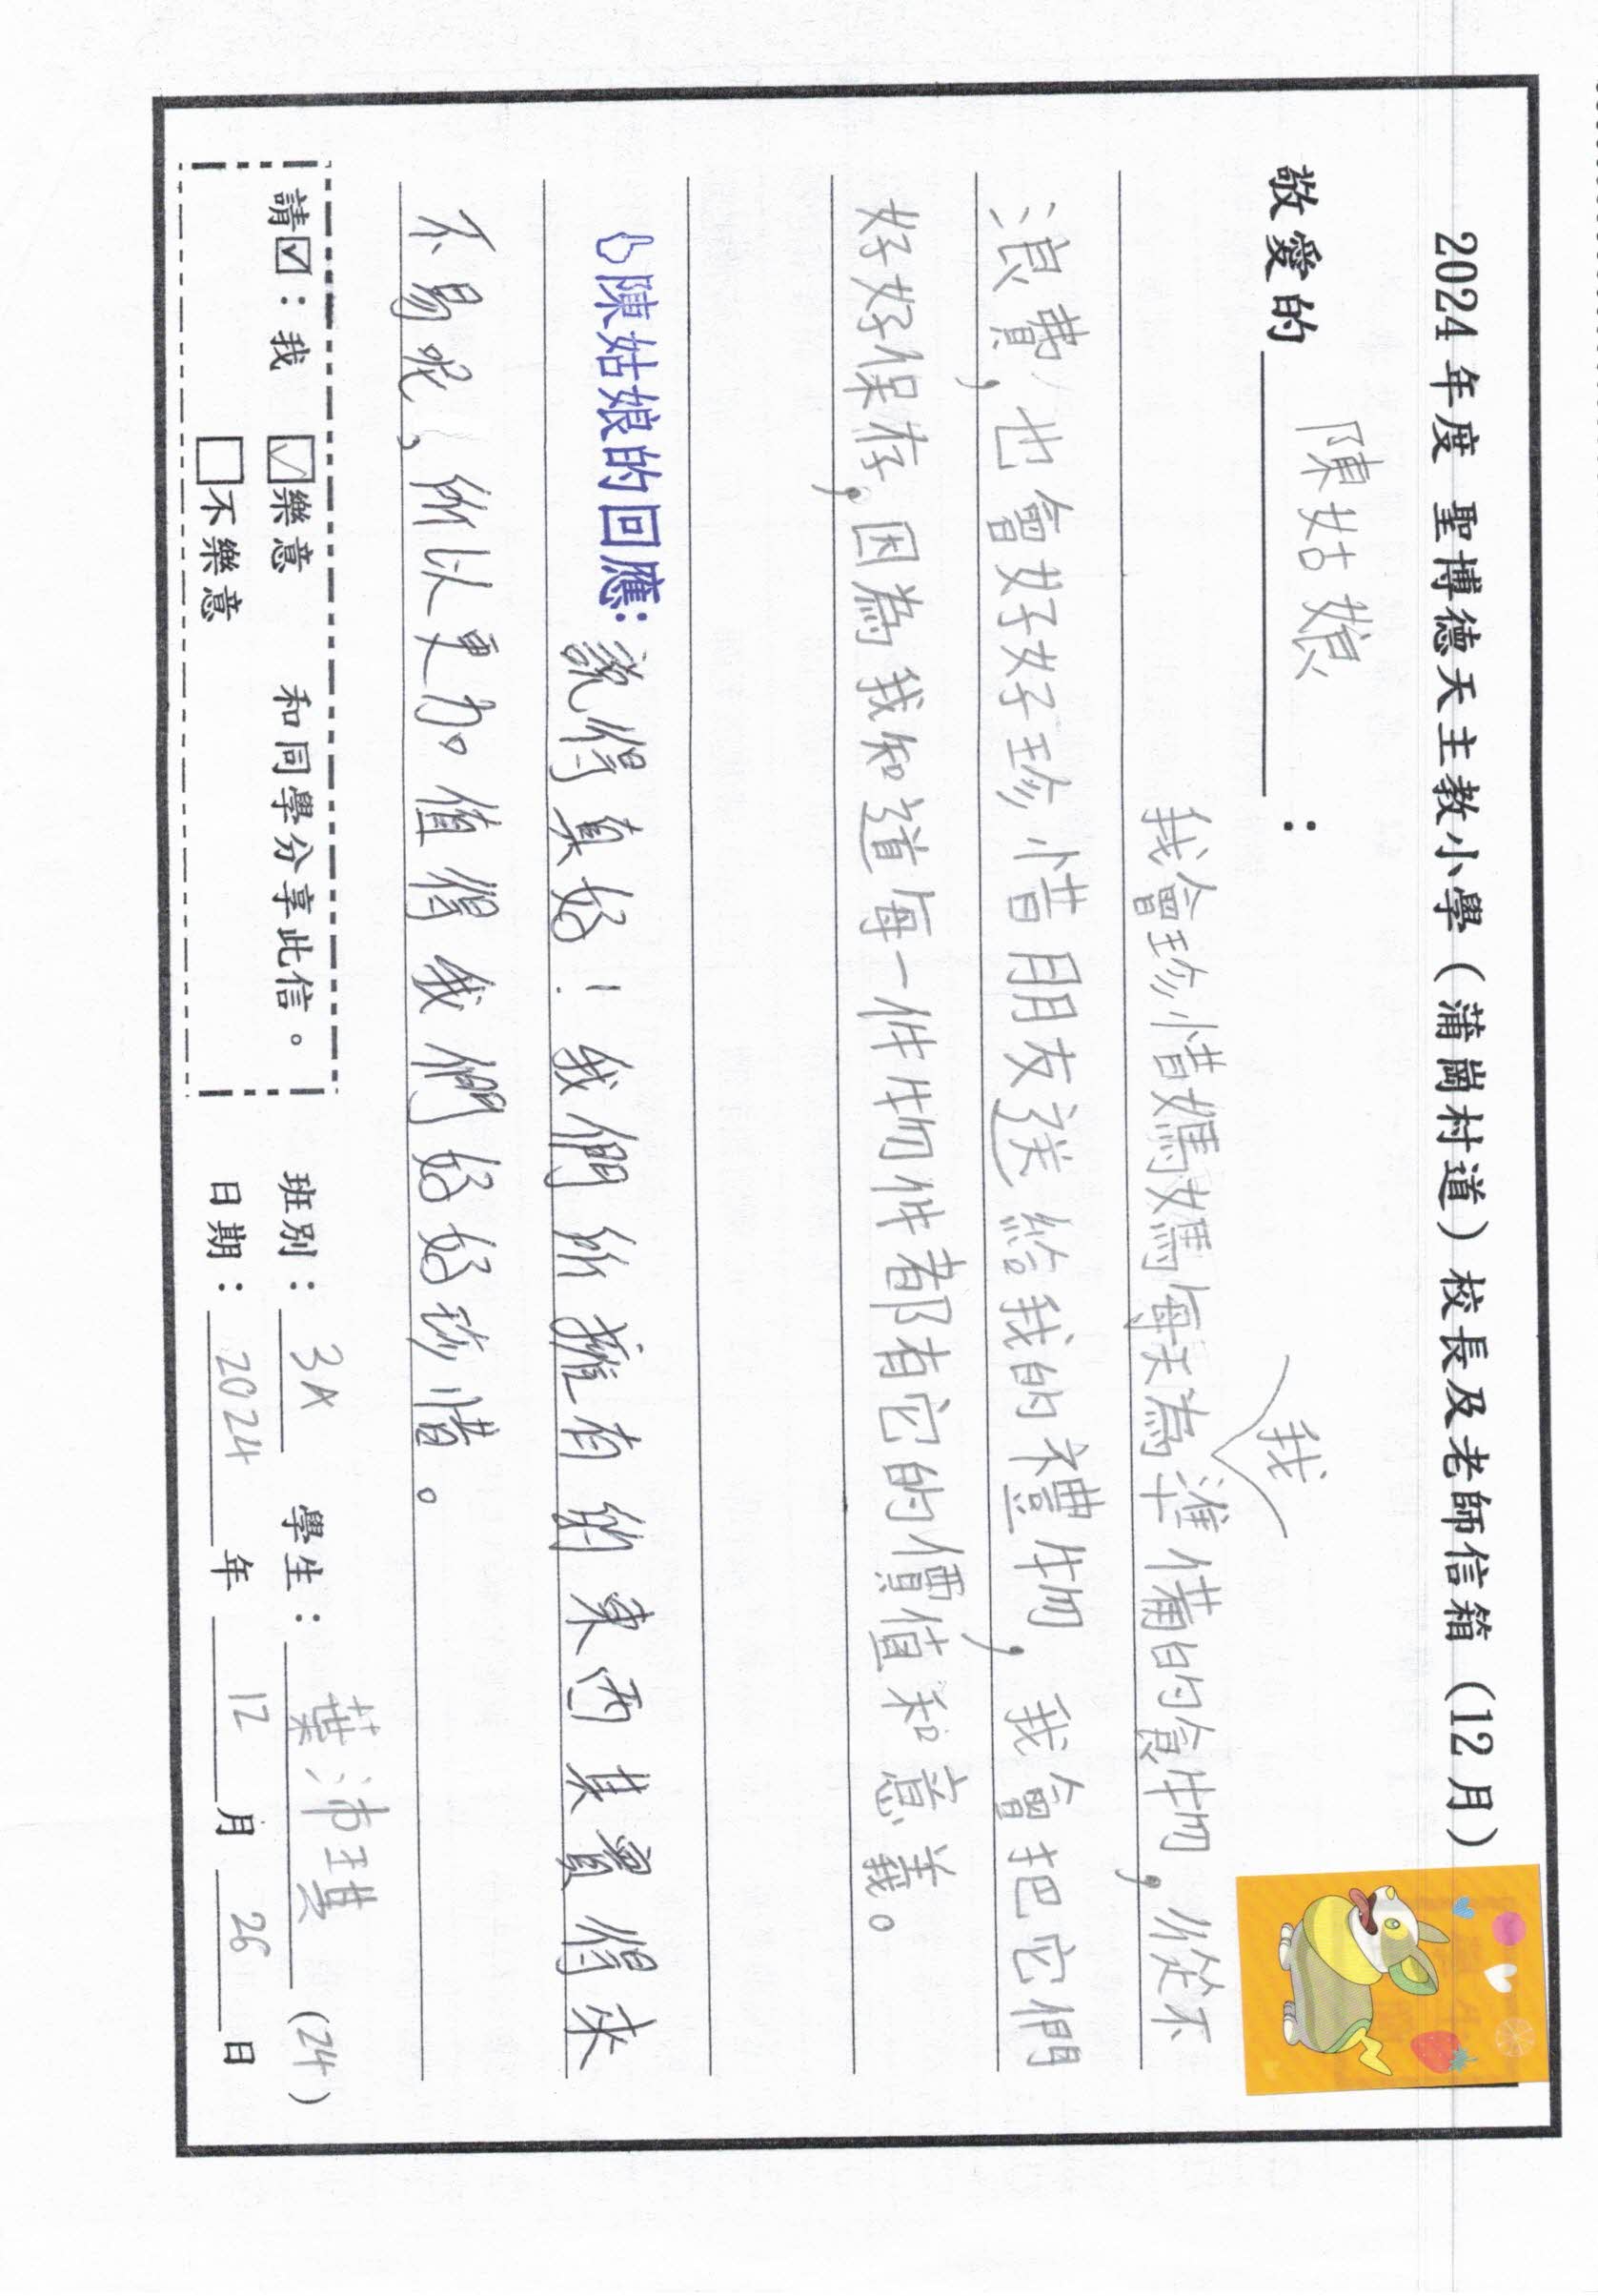 2024年度 聖博德天主教小學（蒲崗村道）校長及老師信箱（12月）
敬愛的 陳姑娘 ：
我會珍惜媽媽每天為我準備的食物，從不
浪費，也會好好珍惜朋友送給我的禮物，我會把它們
好好保存，因為我知道每一件物件都有它的價值和意義。
👍陳姑娘的回應：說得真好！我們所擁有的東西其實得來
不易呢，所以更加值得我們好好珍惜。
請☑：我 ☑樂意 和同學分享此信。
□不樂意
班別：3A 學生：葉沛琪 (24)
日期：2024年12月26日